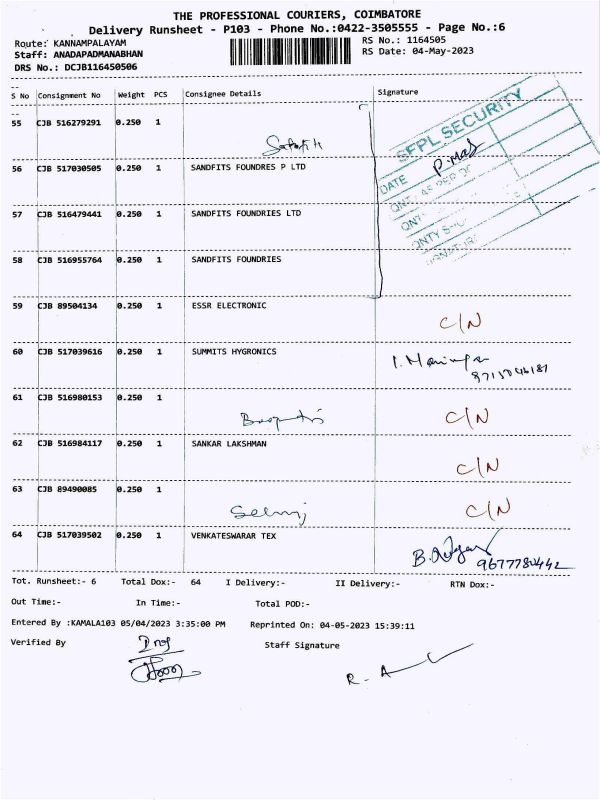 THE PROFESSIONAL COURIERS, COIMBATORE
Delivery Runsheet - P103 - Phone No.:0422-3505555 - Page No.:6
Route: KANNAMPALAYAM
RS No.: 1164505
Staff: ANADAPADMANABHAN
RS Date: 04-May-2023
DRS No.: DCJB116450506
S No Consignment No Weight PCS Consignee Details Signature
55 CJB 516279291 0.250 1
SFPL SECURITY
DATE
56 CJB 517030505 0.250 1 SANDFITS FOUNDRES P LTD
57 CJB 516479441 0.250 1 SANDFITS FOUNDRIES LTD
58 CJB 516955764 0.250 1 SANDFITS FOUNDRIES
59 CJB 89504134 0.250 1 ESSR ELECTRONIC
C/N
60 CJB 517039616 0.250 1 SUMMITS HYGRONICS
61 CJB 516980153 0.250 1
C/N
62 CJB 516984117 0.250 1 SANKAR LAKSHMAN
C/N
63 CJB 89490085 0.250 1
C/N
64 CJB 517039502 0.250 1 VENKATESWARAR TEX
9677780442
Tot. Runsheet:- 6 Total Dox:- 64 I Delivery:- II Delivery:- RTN Dox:-
Out Time:- In Time:- Total POD:-
Entered By :KAMALA103 05/04/2023 3:35:00 PM Reprinted On: 04-05-2023 15:39:11
Verified By Staff Signature